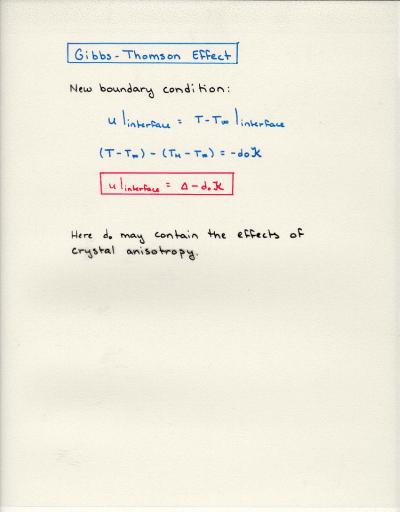 Gibbs-Thomson Effect
New boundary condition:
u|interface = T-T∞|interface
(T-T∞) - (TM-T∞) = -d0K
u|interface = Δ-d0K
Here d0 may contain the effects of
crystal anisotropy.